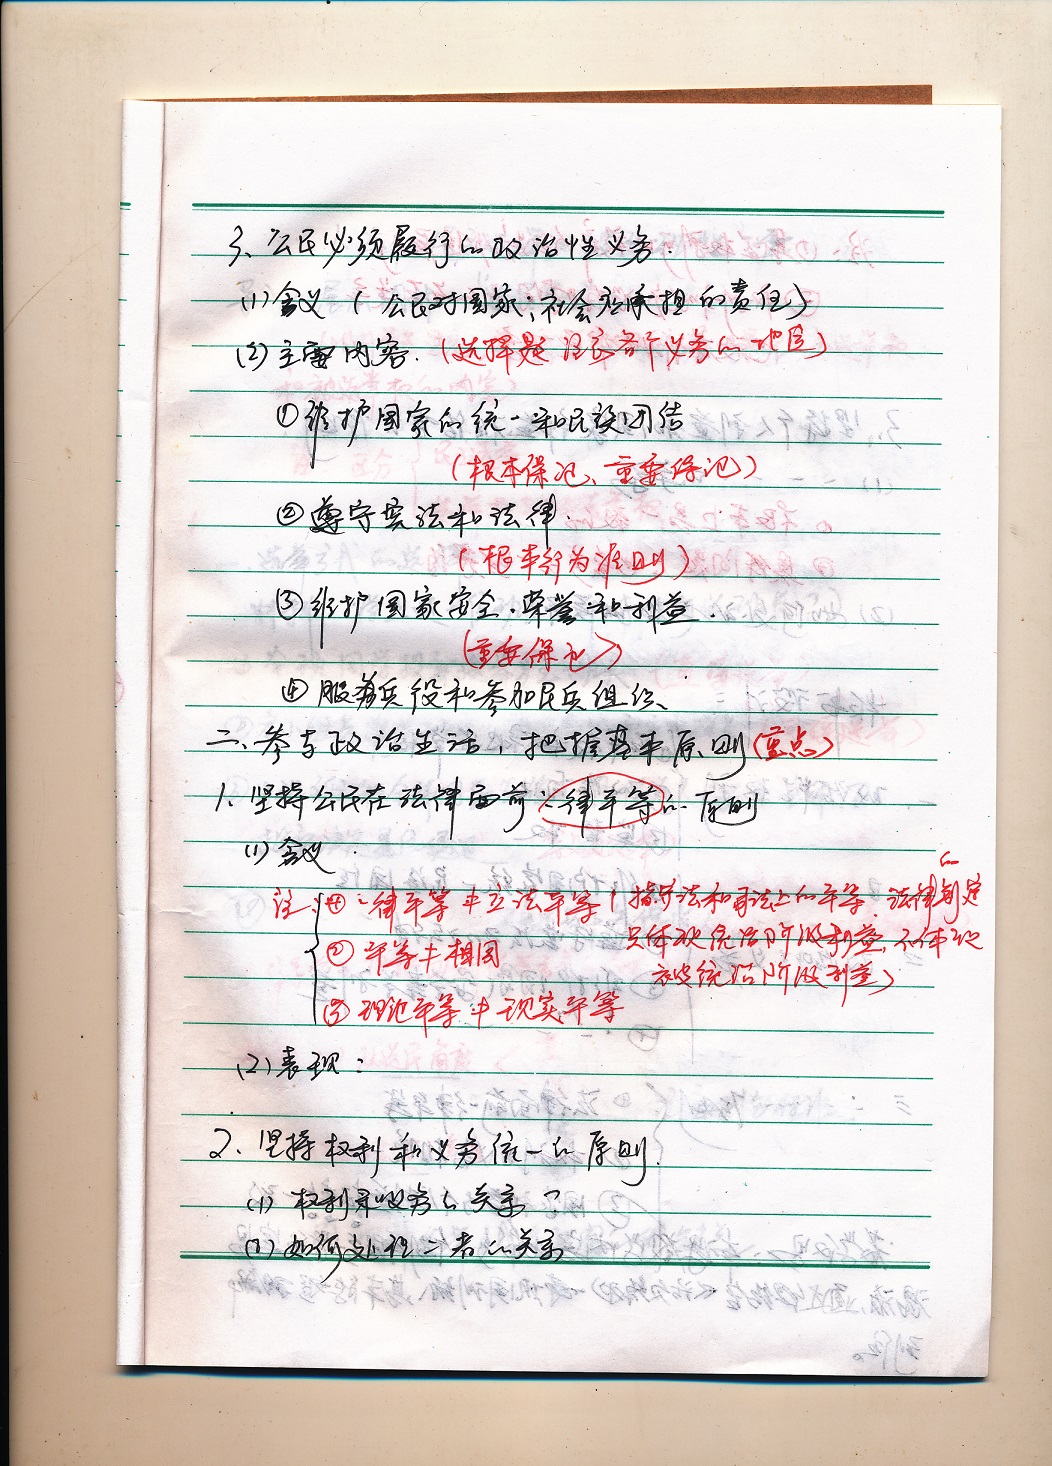 3、公民必须履行的政治性义务.
(1)含义(公民对国家;社会应承担的责任)
(2)主要内容.(选择题 注意各个义务的地位)
①维护国家的统一和民族团结
(根本保证、重要保证)
②遵守宪法和法律.
(根本行为准则)
③维护国家安全.荣誉和利益.
(重要保证)
④服兵役和参加民兵组织、
二、参与政治生活,把握基本原则(重点)
1、坚持公民在法律面前一律平等的原则
(1)含义
注:①一律平等≠立法平等(指守法和司法上的平等.法律的制定
只体现统治阶级利益,不体现
被统治阶级利益)
②平等≠相同
③理论平等≠现实平等
(2)表现:
2、坚持权利和义务统一的原则.
(1)权利和义务的关系
(2)如何处理二者的关系